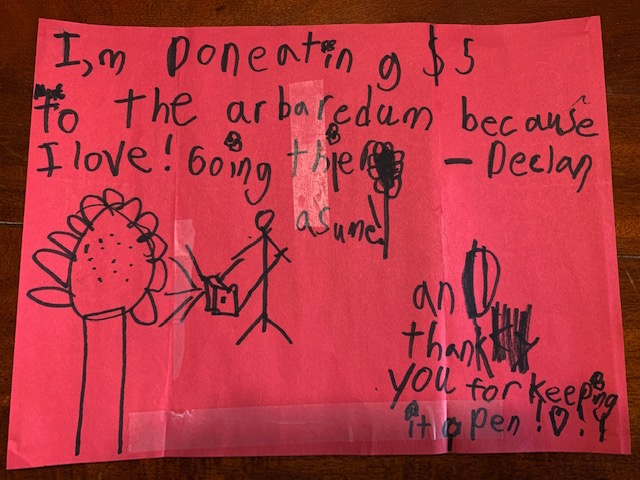 I,m Doneating $5
To the arbaredum because
I love! Going ther
- Declan
asume!
an
thank
you for keeping
it open!♡!